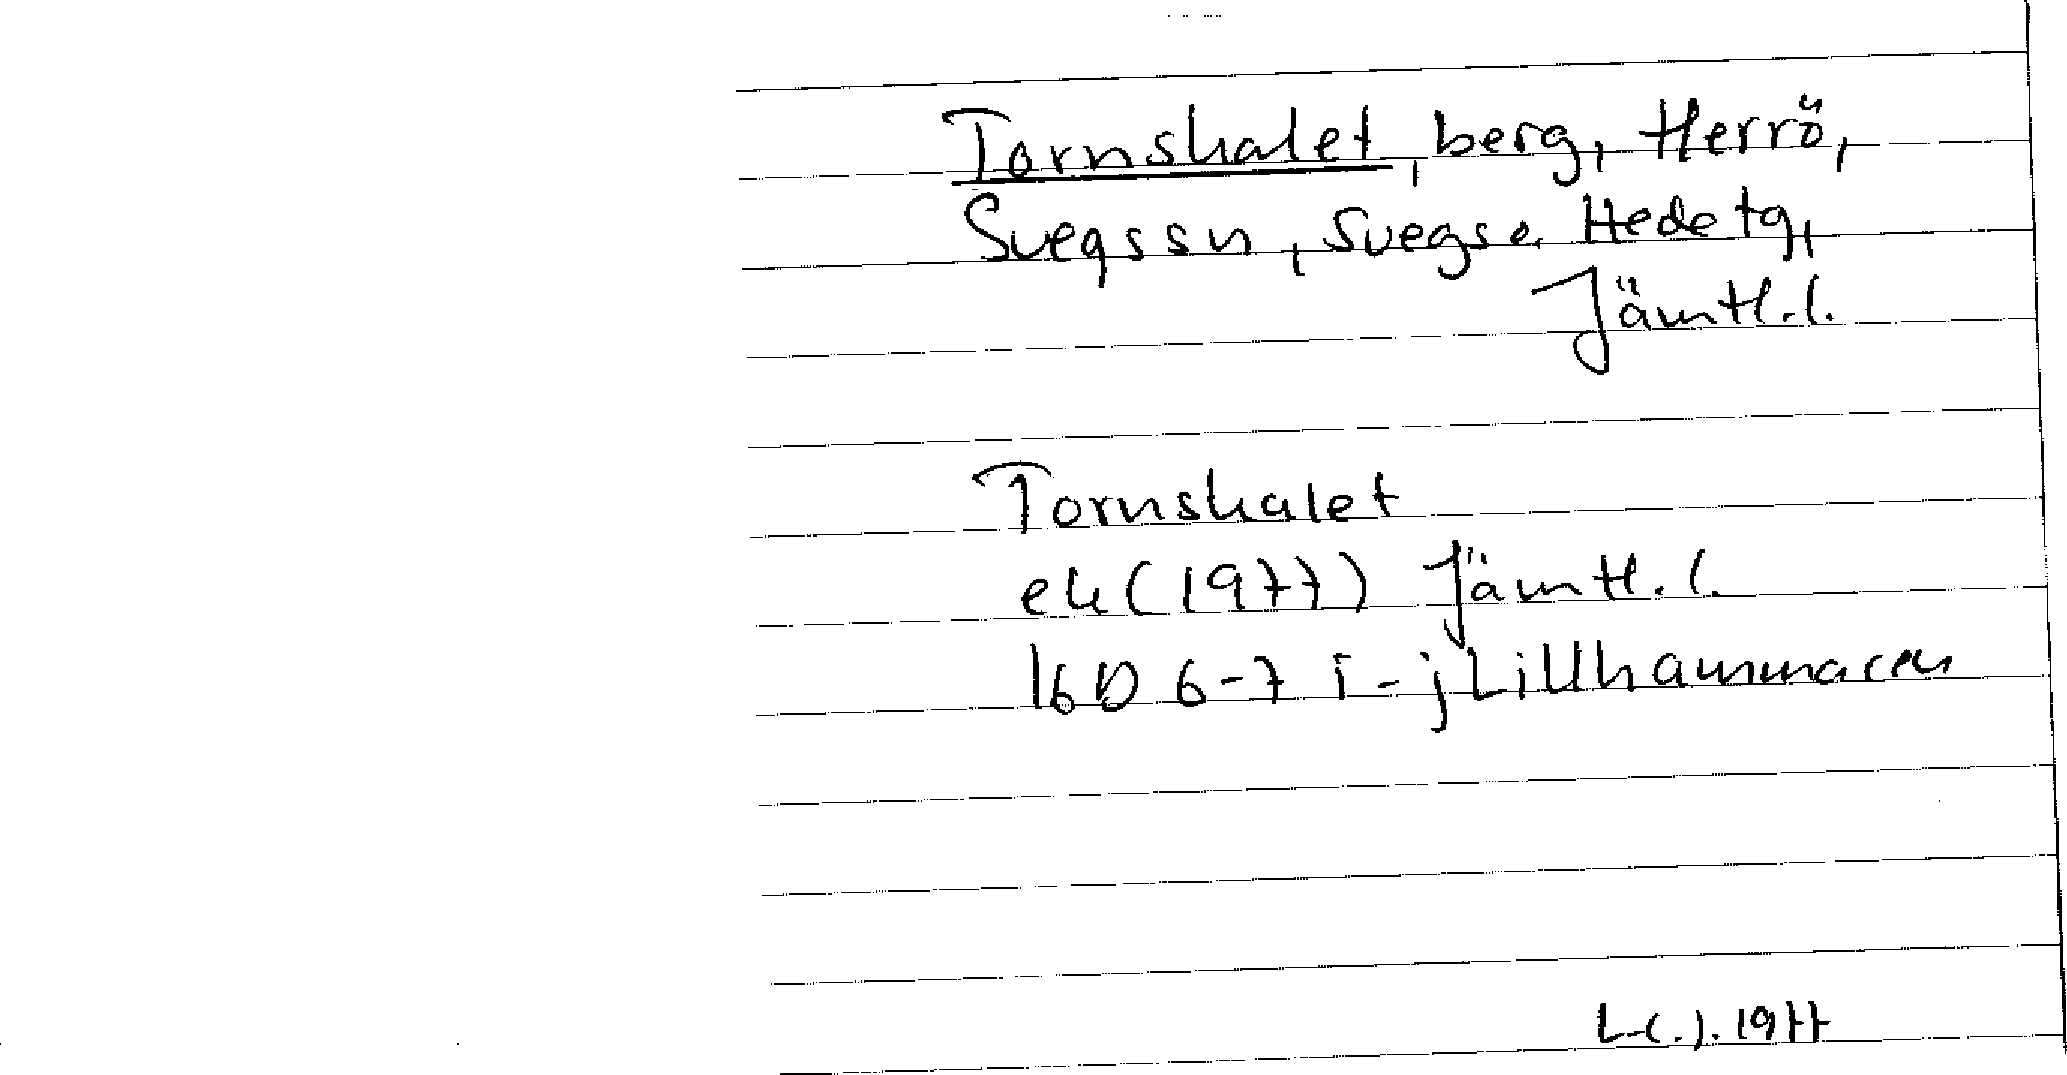 Tornskalet, berg, Herrö,
Svegssn, Svegs o. Hedetg,
Jämtl.l.
Tornskalet
ek (1977) Jämtl.l.
16D 6-7 i-j Lillhammaren
1977